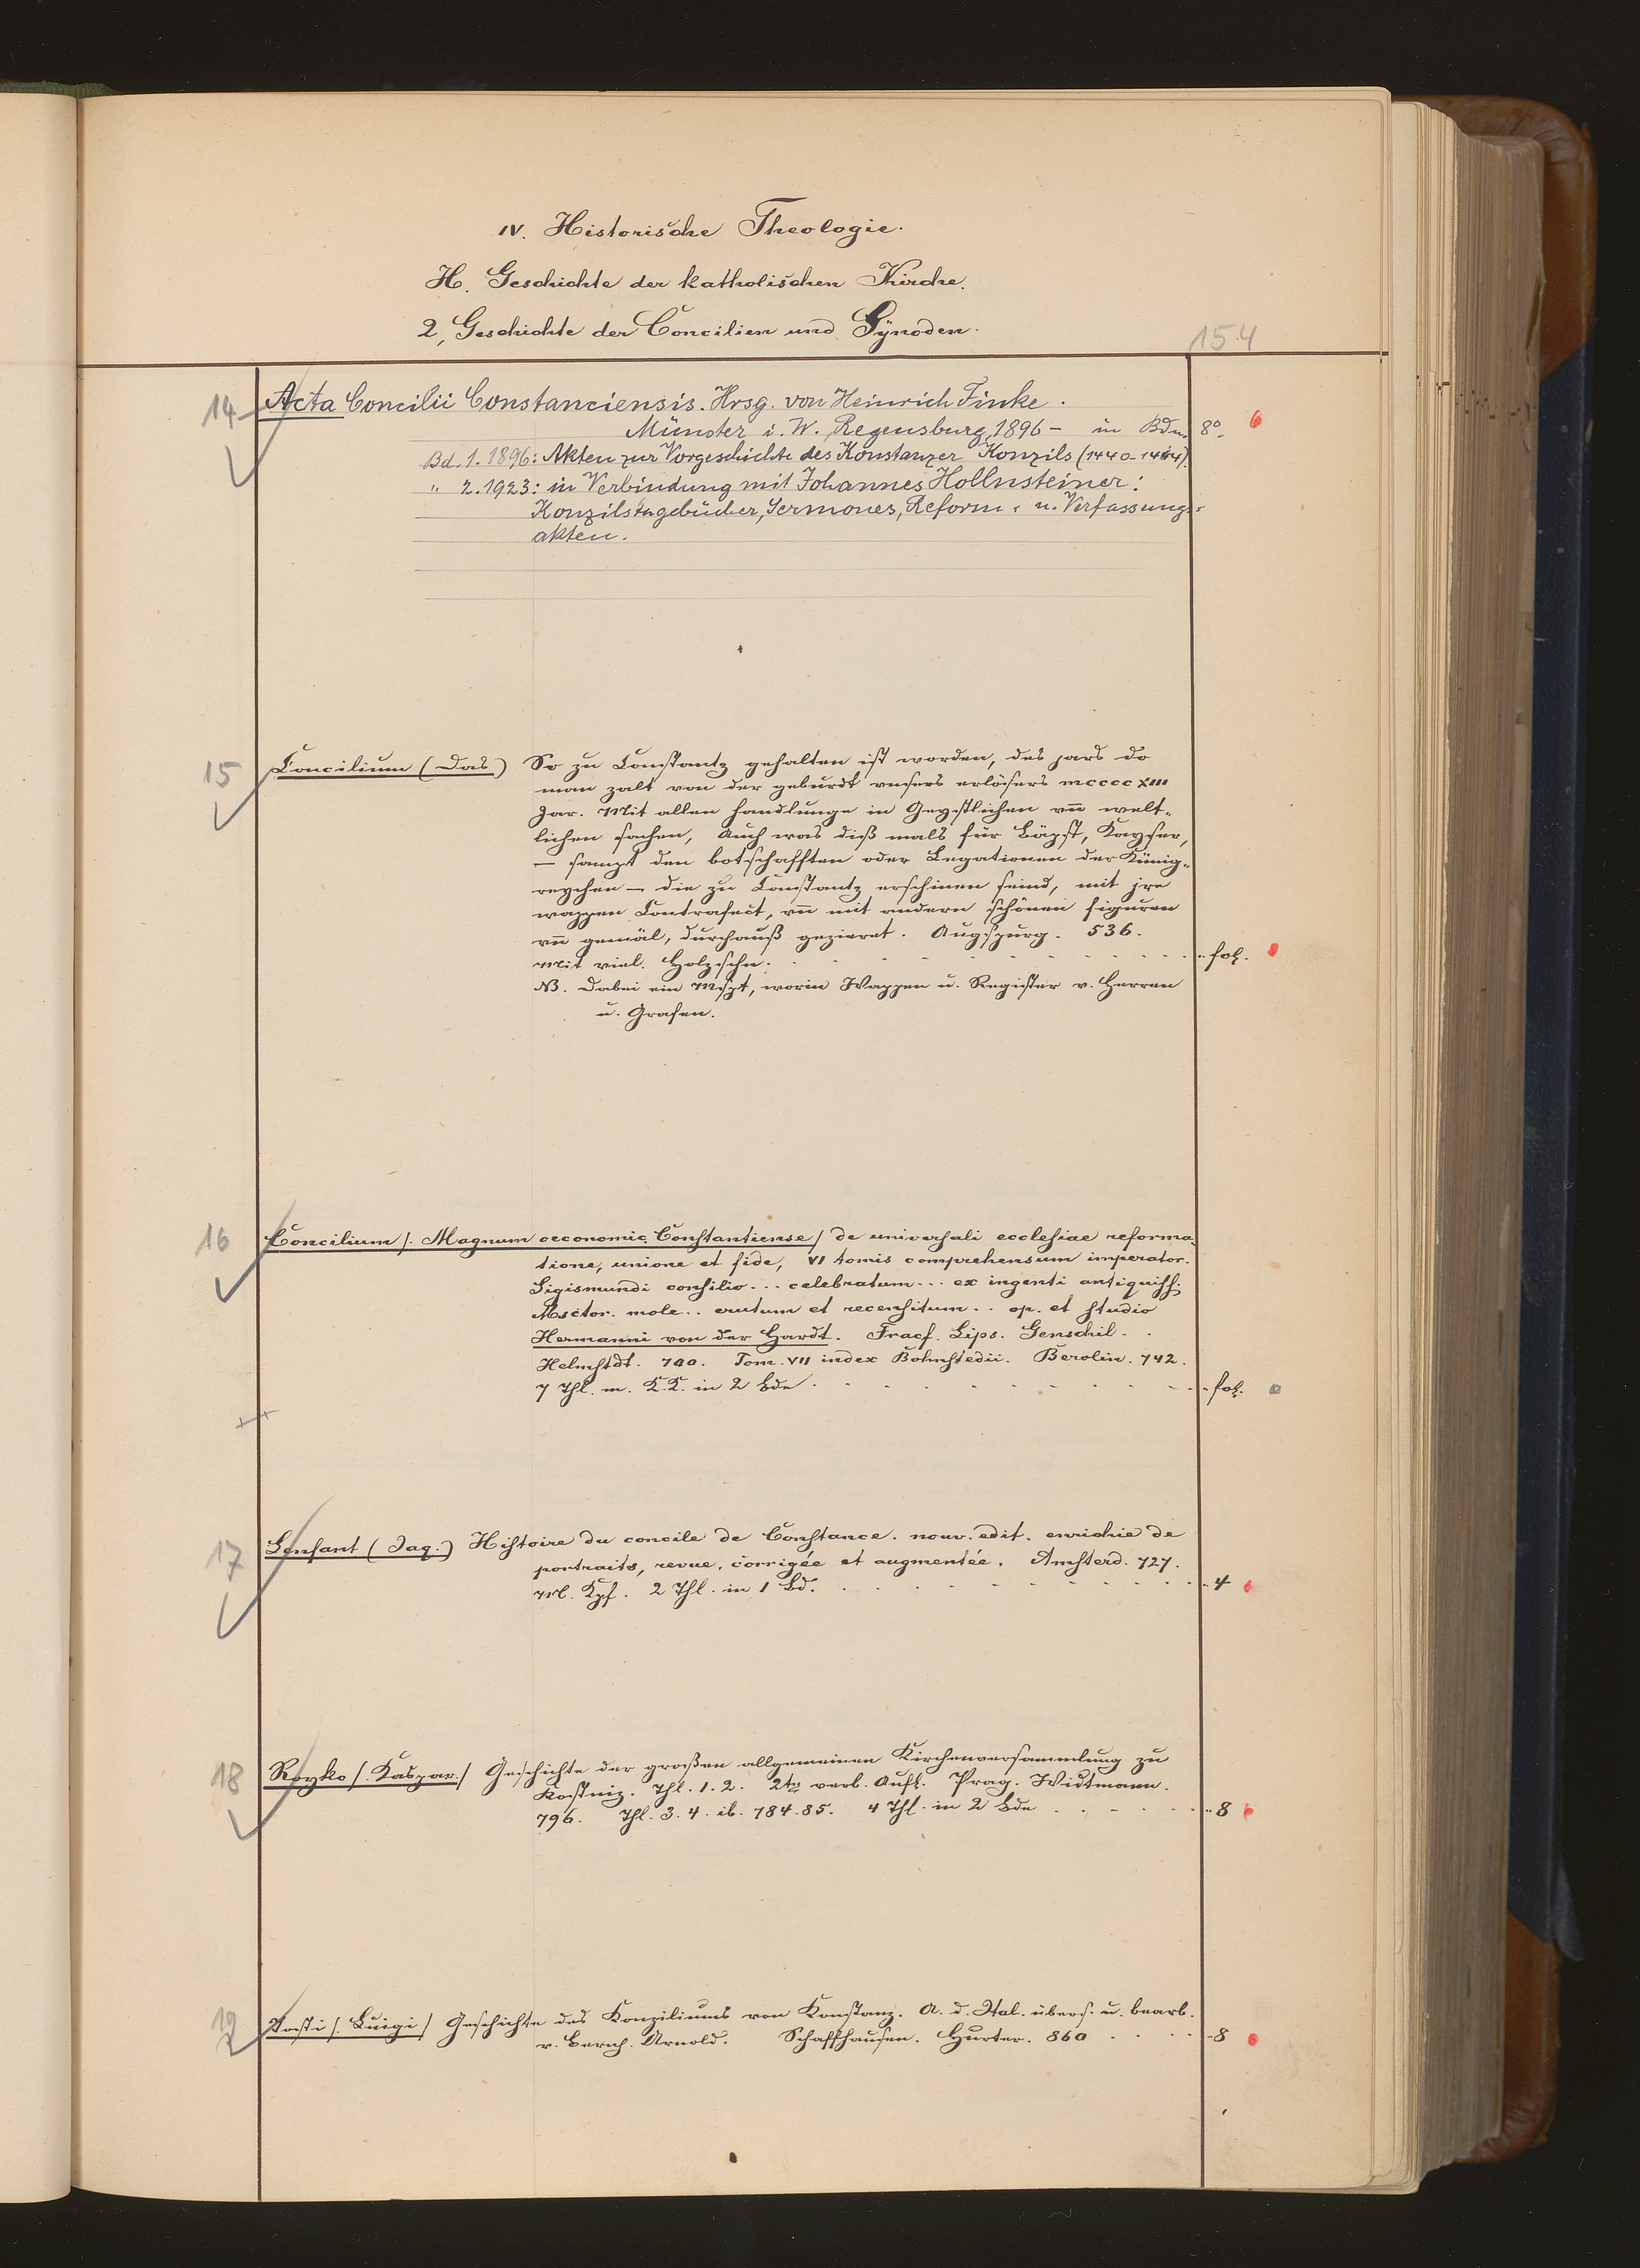 IV. Historische Theologie.
H. Geschichte der katholischen Kirche.
2, Geschichte der Concilien und Synoden.
154
14 Acta Concilii Constanciensis. Hrsg. von Heinrich Finke.
Münster i. W. Regensburg 1896 – in Bdn. 8°.
Bd. 1. 1896: Akten zur Vorgeschichte des Konstanzer Konzils (1440-1444).
" 2. 1923: in Verbindung mit Johannes Hollnsteiner:
Konzilstagebücher, Sermones, Reform- u. Verfassungs-
akten.
15 Concilium (Das) So zu Constantz gehalten ist worden, des jars do
man zalt von der geburdt vnsers erlösers mccccXIII
Jar. Mit allen handlunge in Geystlichen vn̄ welt-
lichen sachen, Auch was diß mals für Bäpst, Kayser,
— sampt den botschafften oder Legationen der Künig-
reychen — die zu Constantz erschinen seind, mit jre
wappen Contrafect, vn̄ mit andern schönen figuren
vn̄ gemäl, durchauß gezieret. Augspurg. 536.
Mit viel. Holzschn. fol.
NB. Dabei ein Mspt, worin Wappen u. Register v. Herren
u. Grafen.
16 Concilium /. Magnum oeconomic. Constantiense / de universali ecclesiae reforma-
tione, unione et fide, VI tomis comprehensum imperator.
Sigismundi consilio... celebratum... ex ingenti antiquiss.
Msctor. mole.. erutum et recensitum.. op. et studio
Hermanni von der Hardt. Fracf. Lips. Genschil.
Helmstdt. 700. Tom. VII index Bohnstedii. Berolin. 742.
7 Thl. m. K.K. in 2 Bde fol.
17 Lenfant (Jaq.) Histoire du concile de Constance. nouv. edit. enrichie de
portraits, revue, corrigée et augmentée. Amsterd. 727.
M. Kpf. 2 Thl. in 1 Bd. 4
18 Royko /. Kaspar./ Geschichte der großen allgemeinen Kirchenversammlung zu
Kostniz. Thl. 1. 2. 2te verb. Aufl. Prag. Widtmann.
796. Thl. 3. 4. ib. 784.85. 4 Thl. in 2 Bde 8
19 Tosti /. Luigi / Geschichte des Konziliums von Konstanz. A. d. Ital. übers. u. bearb.
v. Bernh. Arnold. Schaffhausen. Hurter. 860 8